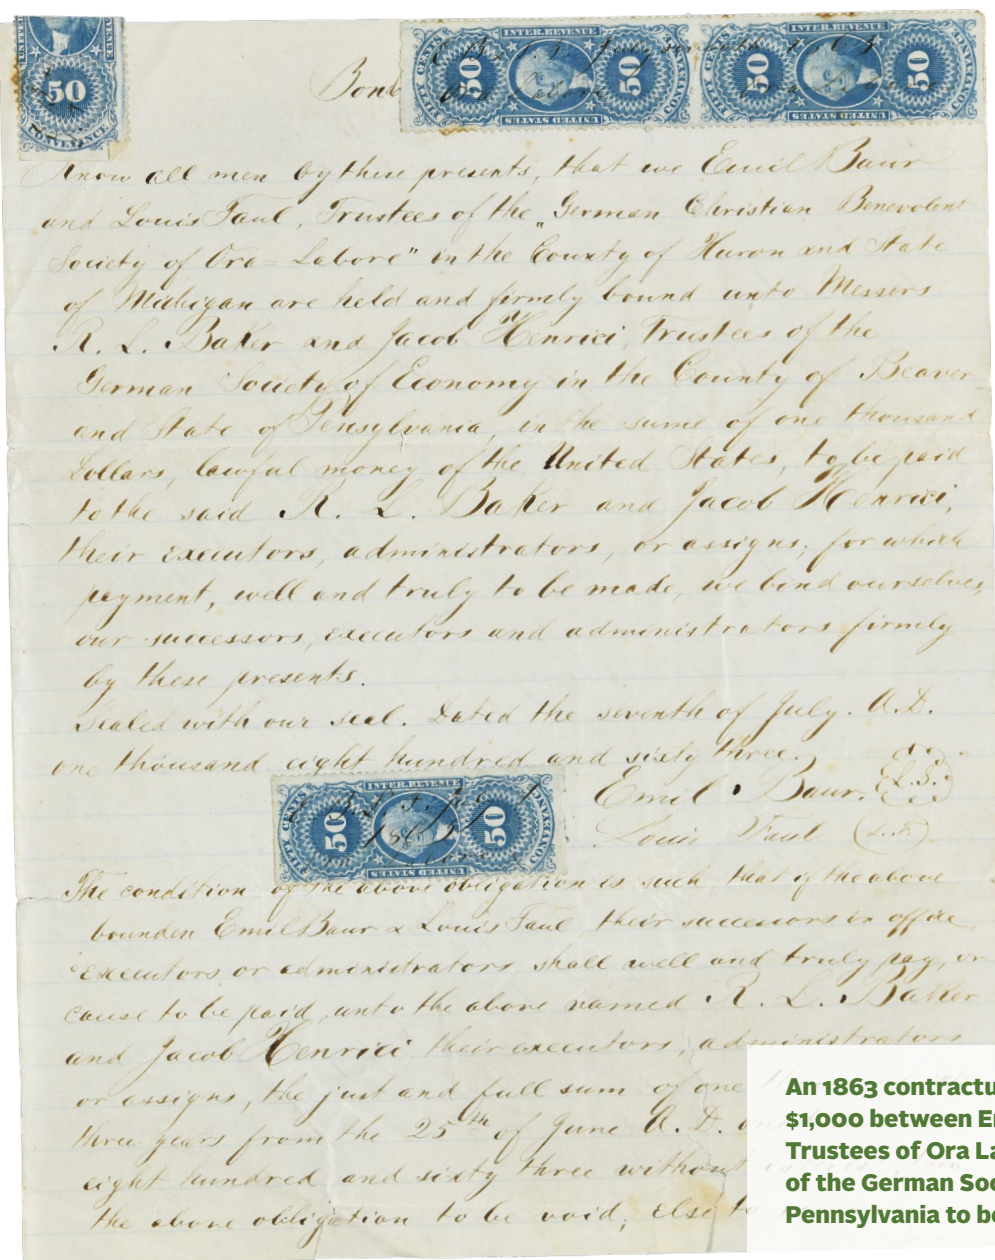 50
CONVEYANCE
Bond
INTER. REVENUE
FIFTY CENTS
50
50
CONVEYANCE
UNITED STATES
INTER. REVENUE
FIFTY CENTS
50
50
CONVEYANCE
UNITED STATES
Know all men by these presents, that we Emil Baur
and Louis Faul, Trustees of the „German Christian Benevolent
Society of Ora-Labore" in the County of Huron and State
of Michigan are held and firmly bound unto Messers
R. L. Baker and Jacob Henrici, Trustees of the
German Society of Economy in the County of Beaver
and State of Pensylvania, in the sume of one thousand
Dollars, lawful money of the United States, to be paid
to the said R. L. Baker and Jacob Henrici,
their executors, administrators, or assigns; for which
payment, well and truly to be made, we bind ourselves,
our successors, executors and administrators firmly
by these presents.
Sealed with our seal. Dated the seventh of July. A.D.
one thousand eight hundred and sixty three.
Emil Baur. L.S.
Louis Faul
INTER. REVENUE
FIFTY CENTS
50
50
CONVEYANCE
UNITED STATES
The condition of the above obligation is such that if the above
bounden Emil Baur & Louis Faul, their successors in office,
executors or administrators, shall well and truly pay, or
cause to be paid, unto the above named R. L. Baker
and Jacob Henrici their executors, administrators
or assigns, the just and full sum of one
three years from the 25th of June A.D.
eight hundred and sixty three without
the above obligation to be void; else to
An 1863 contractu
$1,000 between E
Trustees of Ora La
of the German Soc
Pennsylvania to be